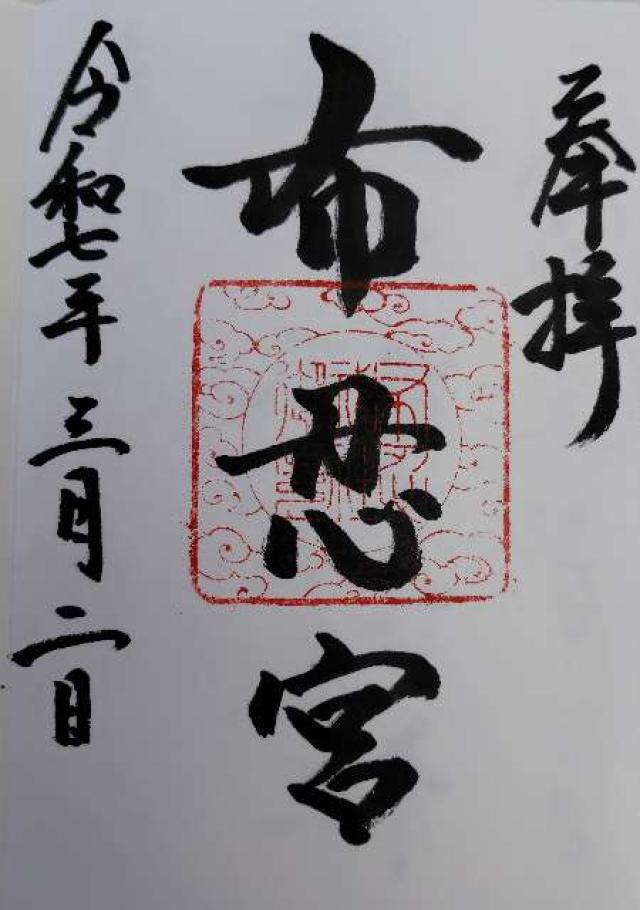 奉拝
布忍宮
令和七年三月二日